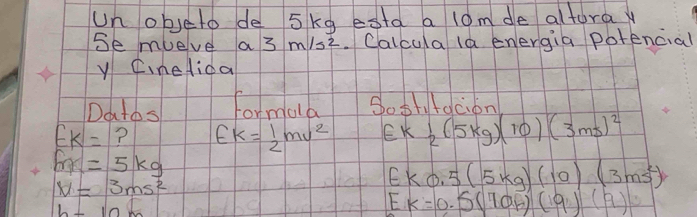 Un objeto de 5kg esta a 10m de altura y
se mueve a 3 m/s². Calcula la energia potencial
y Cinetica
Datos Formula Sostitución
EK = ? EK = ½ mv² EK ½ (5kg)(10)(3ms)²
m = 5kg
V = 3ms² EK 0.5 (5kg)(10) (3ms²)
h = 10m EK = 0.5 (19) (9)